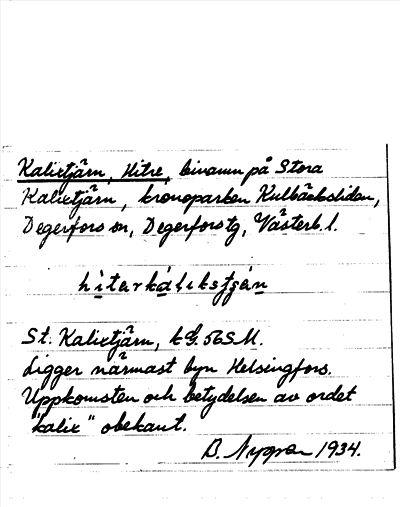 Kalixtjärn, Hitre, binamn på Stora
Kalixtjärn, kronoparken Kulbäcksliden,
Degerfors sn, Degerfors tg, Västerb. l.
hìtarkálikstjǽn
St. Kalixtjärn, 56 SM.
Ligger närmast byn Helsingfors.
Uppkomsten och betydelsen av ordet
"kalix" obekant.
B. Nygren 1934.